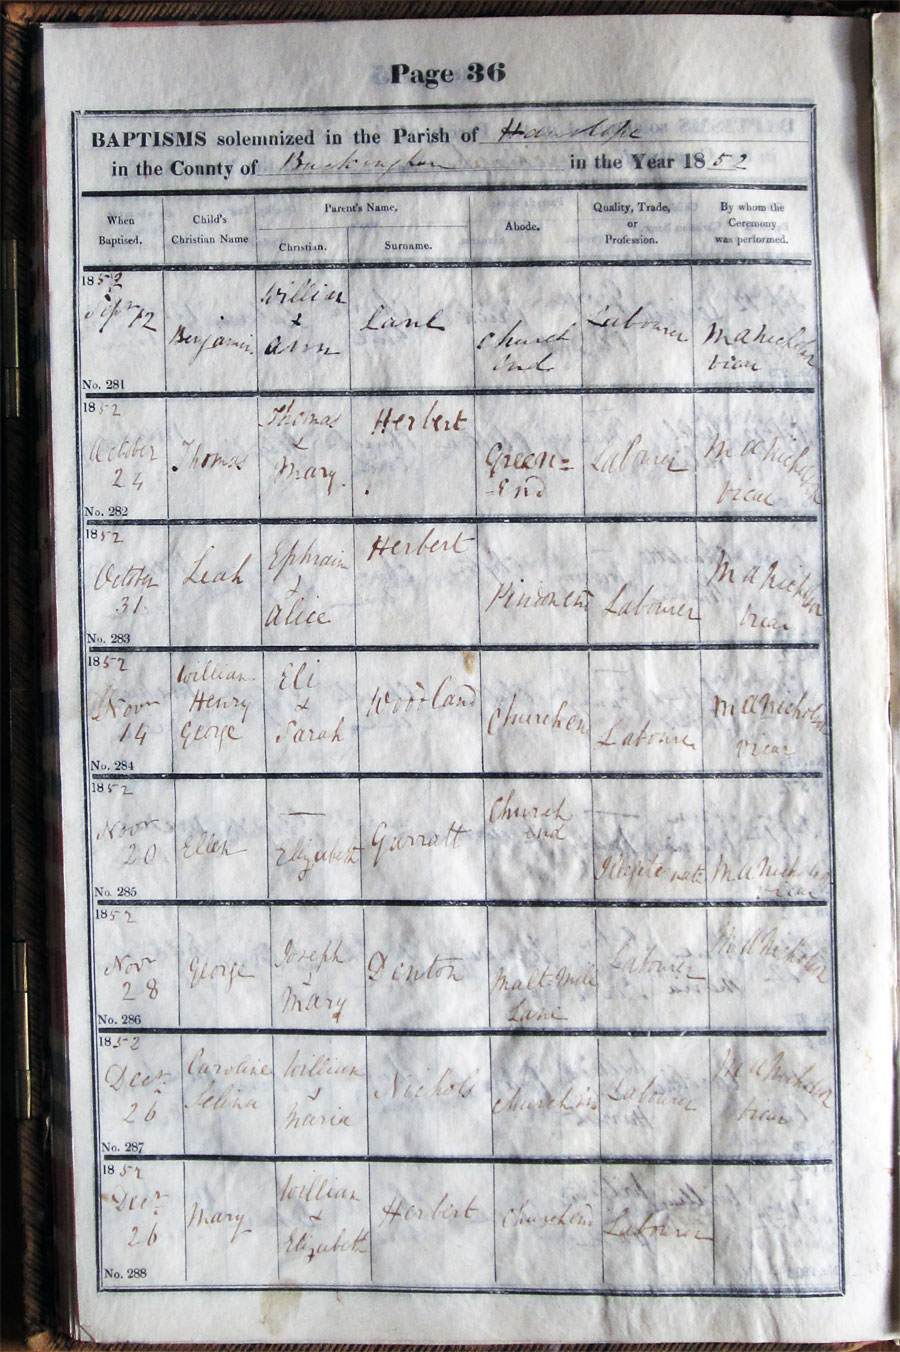 Page 36
BAPTISMS solemnized in the Parish of Hanslope
in the County of Buckingham in the Year 1852
When Baptised.
Child's Christian Name
Parent's Name.
Christian.
Surname.
Abode.
Quality, Trade, or Profession.
By whom the Ceremony was performed.
1852
Sepr 12
Benjamin
William
&
Ann
Church
End
Labourer
M A Nicholson
Vicar
No. 281
1852
October
24
Thomas
Thomas
&
Mary
Herbert
Green=
-End
Labourer
M A Nicholson
Vicar
No. 282
1852
October
31.
Leah
Ephraim
&
Alice
Herbert
Labourer
M A Nicholson
Vicar
No. 283
1852
Novr
14
William
Henry
George
Eli
&
Sarah
Woodland
Churchend
Labourer
M A Nicholson
Vicar
No. 284
1852
Novr
20
Ellen
—
Elizabeth
Garratt
Church
end
Illegitemate
M A Nicholson
Vicar
No. 285
1852
Novr
28
George
Joseph
&
Mary
Denton
Malt Mill
Lane
Labourer
M A Nicholson
No. 286
1852
Decr
26
Caroline
Selina
William
&
Maria
Nichols
Churchend
Labourer
M A Nicholson
Vicar
No. 287
1852
Decr
26
Mary
William
&
Elizabeth
Herbert
Churchend
Labourer
No. 288